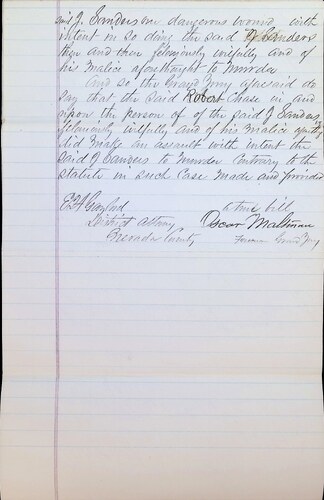 said J. Sanders one dangerous wound with
intent in so doing the said J Sanders
then and there feloniously wilfully and of
his malice aforethought to murder
And so the Grand Jury aforesaid do
say that the said Robert Chase in and
upon the person of of the said J Sanders
feloniously wilfully and of his malice
did make an assault with intent the
said J Sanders to murder Contrary to the
statute in such Case made and provided
A true bill
District Attorney Oscar Maltman
County Foreman Grand Jury